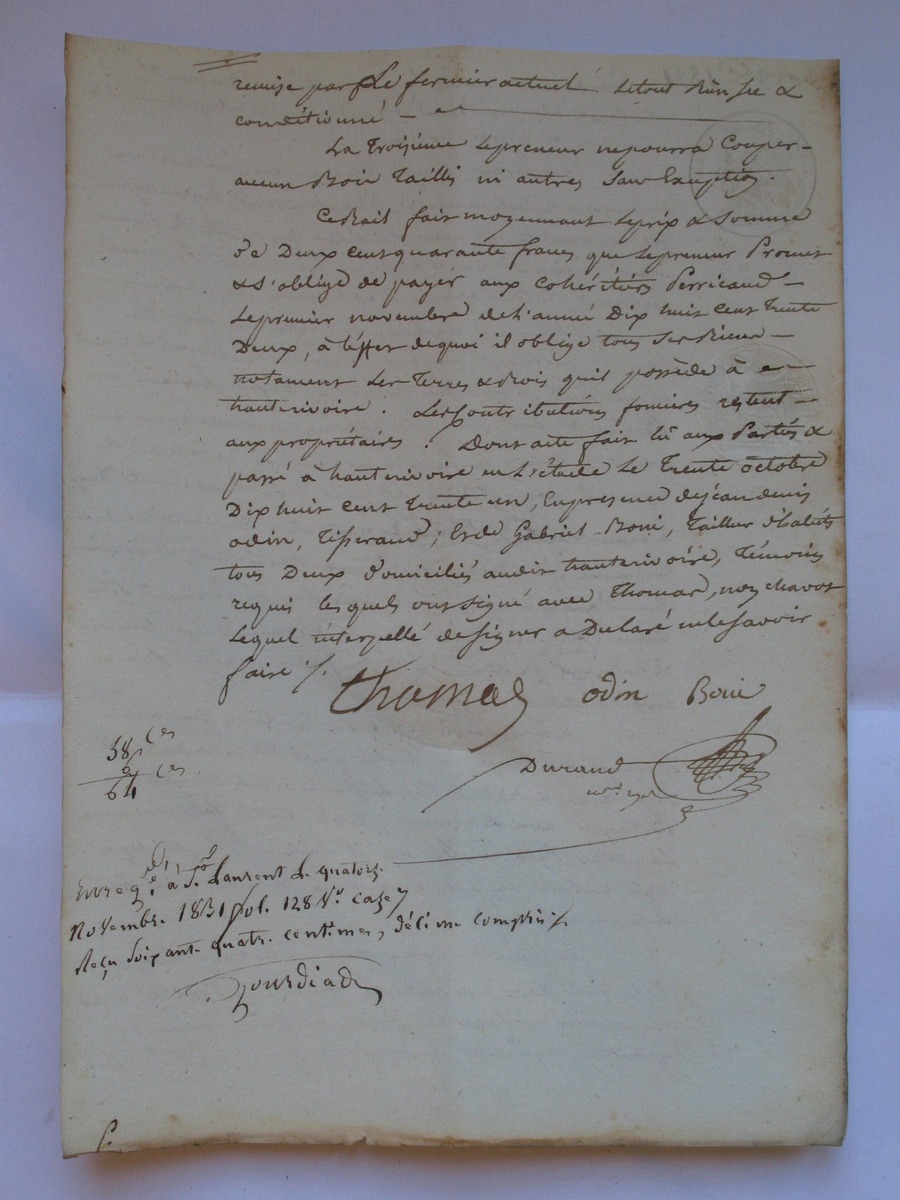 remise par Le fermier actuel. Le tout Bien sec &
conditionné —
La Troisième Le preneur ne pourra Couper
aucun Bois Taillis ni autres Sans Exception.
Ce Bail fait moyennant Le prix & Somme
de Deux cent quarante francs que Le preneur Promet
& S'oblige de payer aux cohéritiers Perricaud —
Le premier novembre de L'année Dix huit cent trente
Deux, à L'effet de quoi il oblige tous ses Biens —
notament Les Terres & Bois qu'il possède à
hauterivoire. Les Contributions foncières restent —
aux propriétaires. Dont acte fait lû aux Parties &
passé à hauterivoire en L'étude Le Trente octobre
Dix huit cent Trente un, En presence de jean denis
odin, Tisserand, Et de Gabriel Boni, Tailleur d'habits
tous Deux domiciliés audit hauterivoire, Témoins
requis les quels ont signé avec Thomas, non chavot
Lequel interpellé de signer a Déclaré ne le savoir
faire ./.
Thomas odin Boni
Durand
58 ces
6 ces
64
Enregé à St Laurent Le quatorze
Novembre 1831 fol. 128 Vo case 7
Reçu Soixante quatre centimes, décime compris ./.